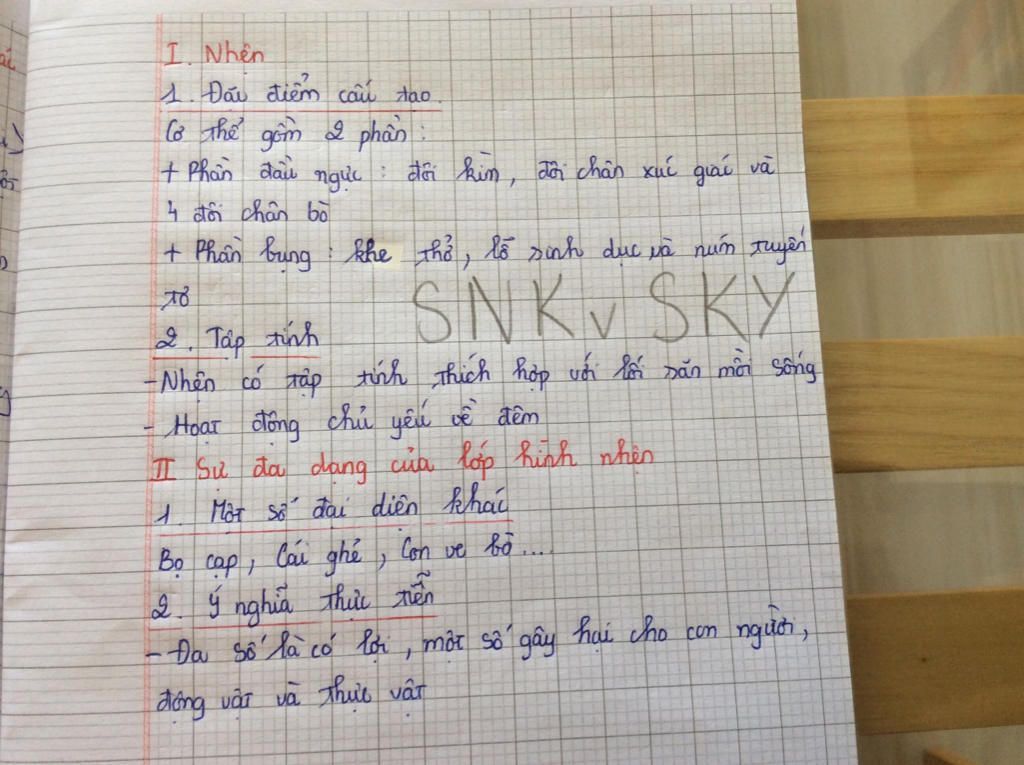 I. Nhện
1. Đăc điểm cấu tạo.
Cơ thể gồm 2 phần:
+ Phần đầu ngực: đôi kìm, đôi chân xúc giác và
4 đôi chân bò
+ Phần bụng: khe thở, lỗ sinh dục và núm tuyến
tơ
SNKvSKY
2. Tập tính
- Nhện có tập tính thích hợp với lối săn mồi sống
- Hoạt động chủ yếu về đêm
II Sự đa dạng của lớp hình nhện
1. Một số đại diện khác
Bọ cạp, Cái ghẻ, Con ve bò...
2. Ý nghĩa thực tiễn
- Đa số là có lợi, một số gây hại cho con người,
động vật và thực vật